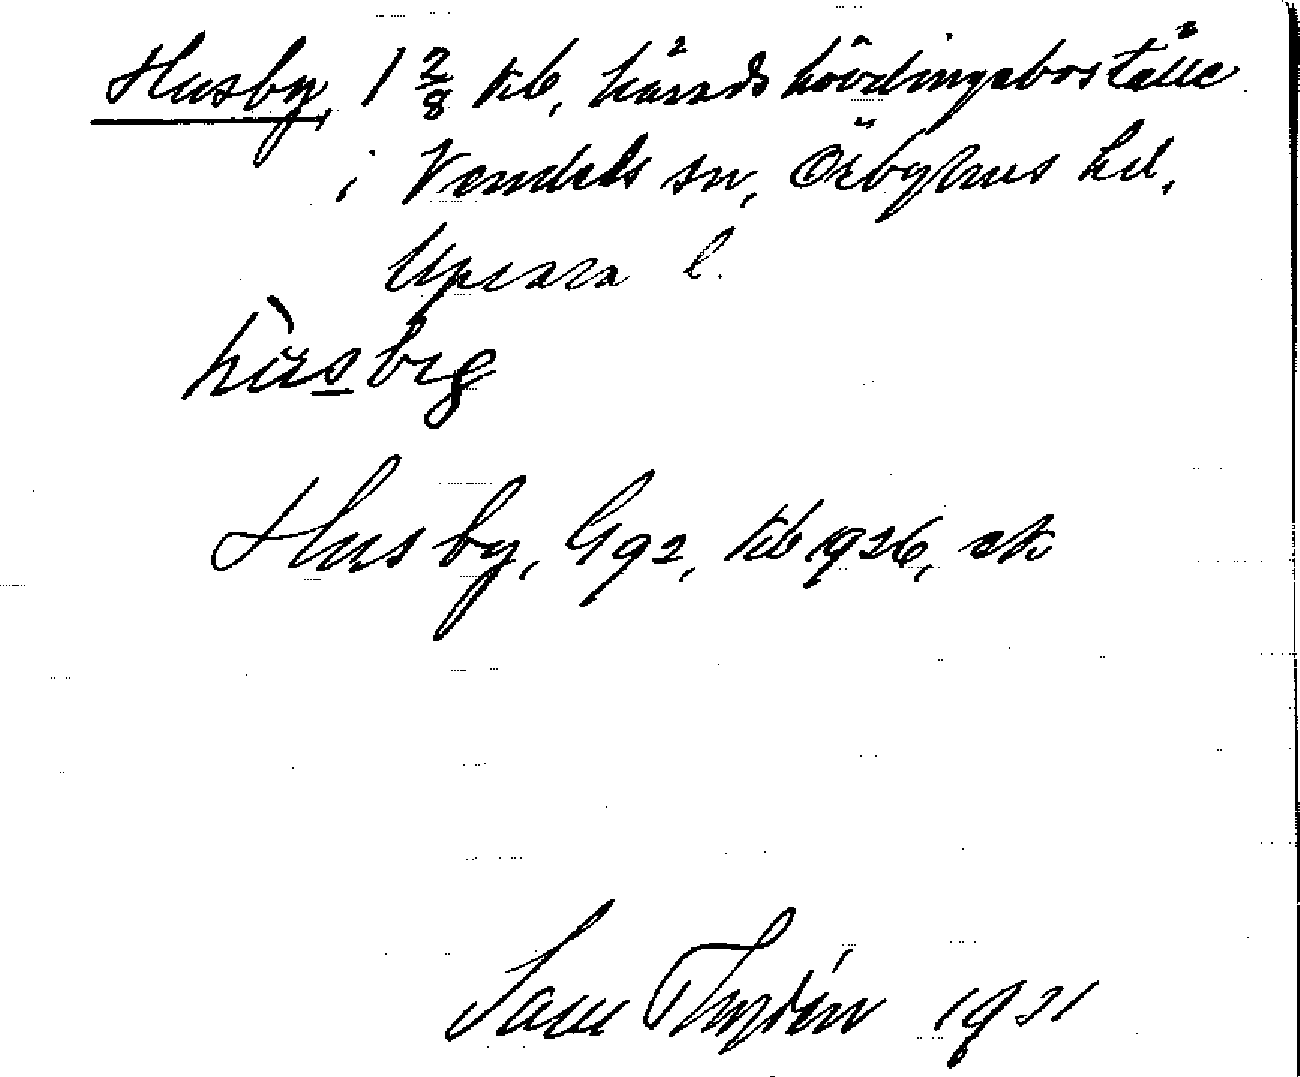 Husby, 1 2/8 kb, häradshövdingeboställe
i Vendels sn, Örbyhus hd,
Upsala l.
hùsbyg
Husby, G 92, kb 1926, ek
Sam 1931